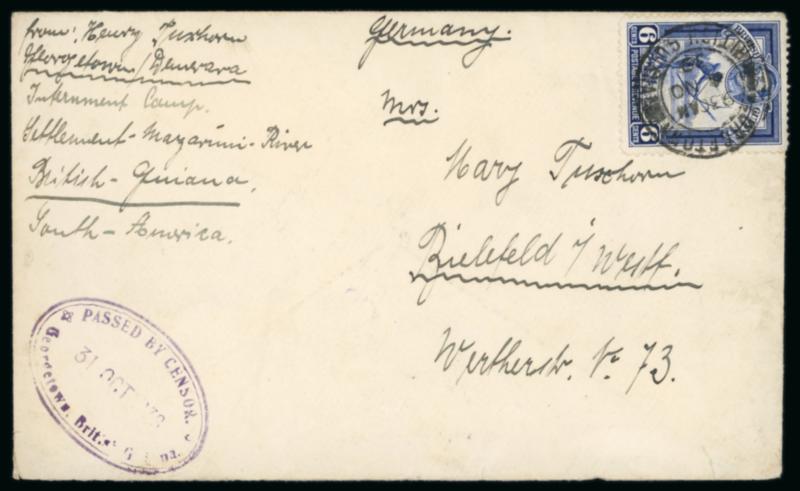 from: Henry Tuxhorn
Georgetown/Demerara
Internment Camp.
Settlement-Mazaruni-River
British-Guiana,
South-America.
Germany.
Mrs.
Mary Tuxhorn
Bielefeld i/Westf.
Wertherstr. Nr 73.
6 CENTS
POSTAGE & REVENUE
6 CENTS
PASSED BY CENSOR.
31 OCT
Georgetown, British